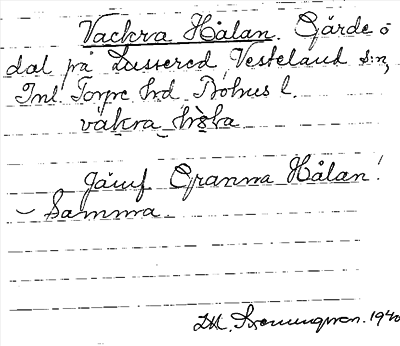 Vackra Hålan. Gärde o
dal på Lussered Vesteland s:n,
Inl. Torpe hd Bohus l.
vakra hòla
Jämf Granna Hålan!
- Samma
1940